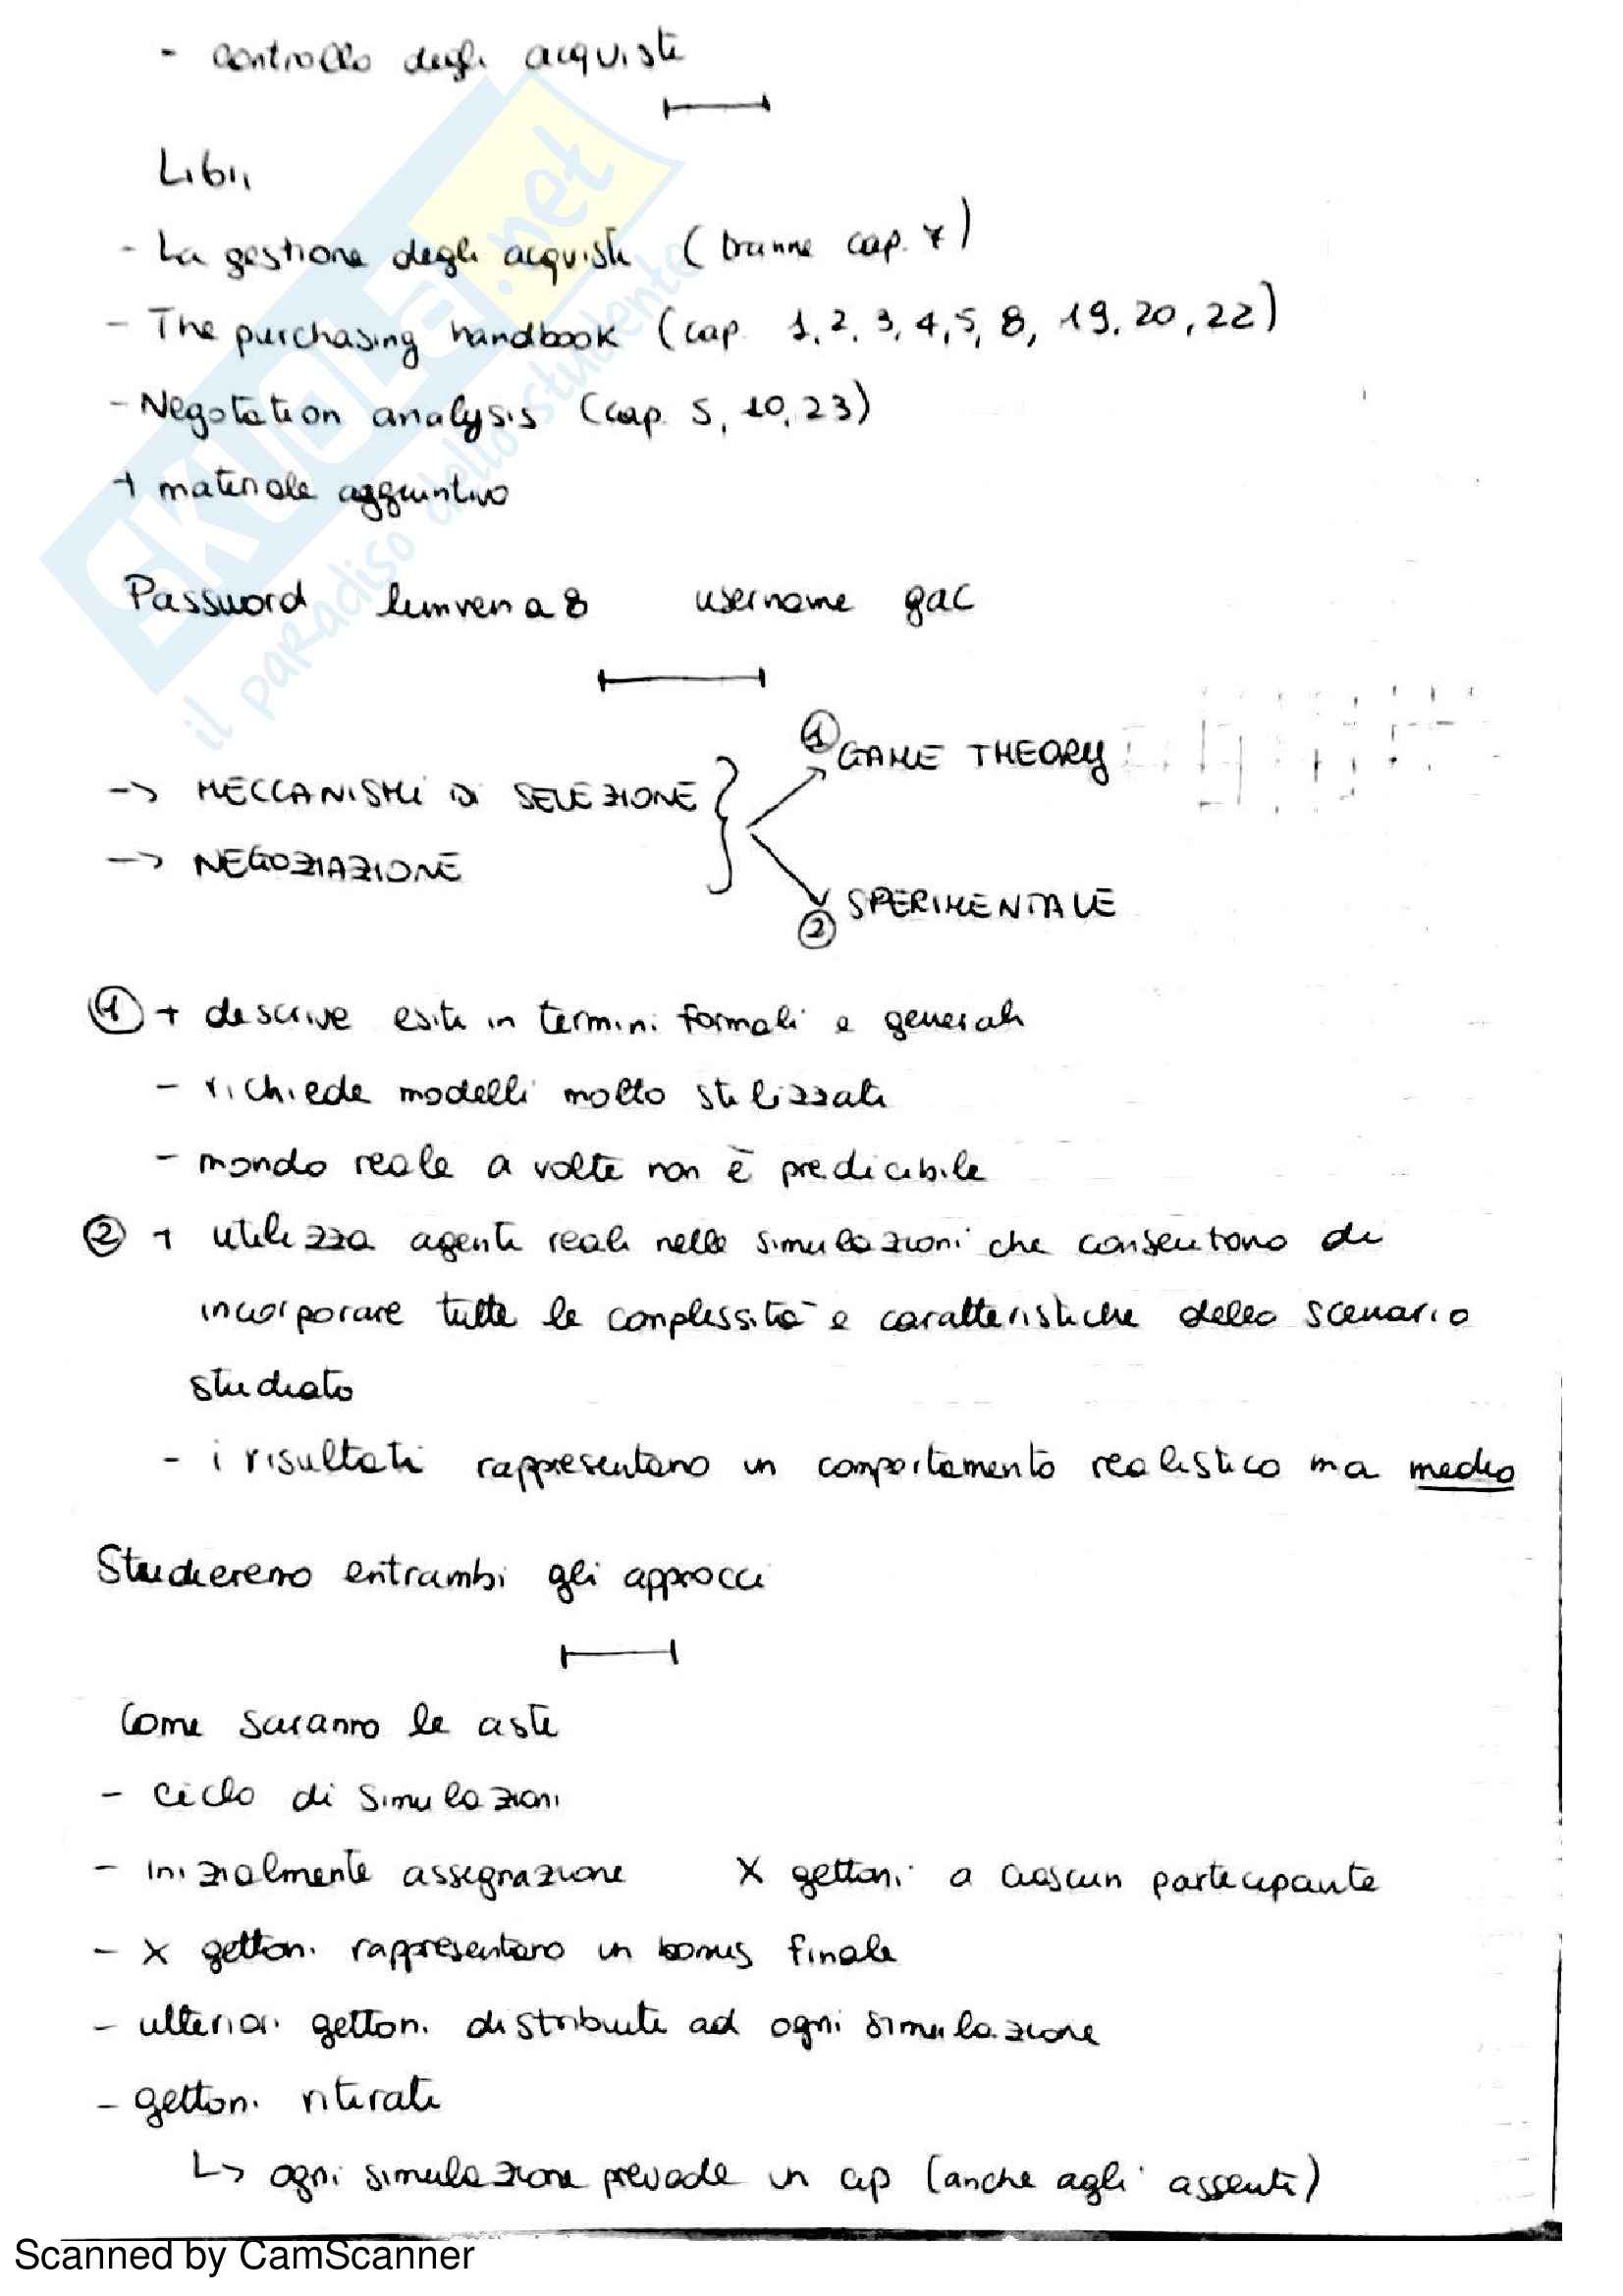 - controllo degli acquisti
Libri
- La gestione degli acquisti (tranne cap. 7)
- The purchasing handbook (cap. 1, 2, 3, 4, 5, 8, 19, 20, 22)
- Negotation analysis (cap. 5, 10, 23)
+ materiale aggiuntivo
Password lumvena8 username gac
-> MECCANISMI DI SELEZIONE
-> NEGOZIAZIONE
① GAME THEORY
② SPERIMENTALE
① + descrive esiti in termini formali e generali
- richiede modelli molto stilizzati
- mondo reale a volte non è predicibile
② + utilizza agenti reali nelle simulazioni che consentono di
incorporare tutte le complessità e caratteristiche dello scenario
studiato
- i risultati rappresentano un comportamento realistico ma medio
Studieremo entrambi gli approcci
Come saranno le aste
- ciclo di simulazioni
- inizialmente assegnazione X gettoni a ciascun partecipante
- X gettoni rappresentano un bonus finale
- ulteriori gettoni distribuiti ad ogni simulazione
- gettoni ritirati
↳ ogni simulazione prevede un (anche agli assenti)
SKUOLA.net
il paradiso dello studente
Scanned by CamScanner